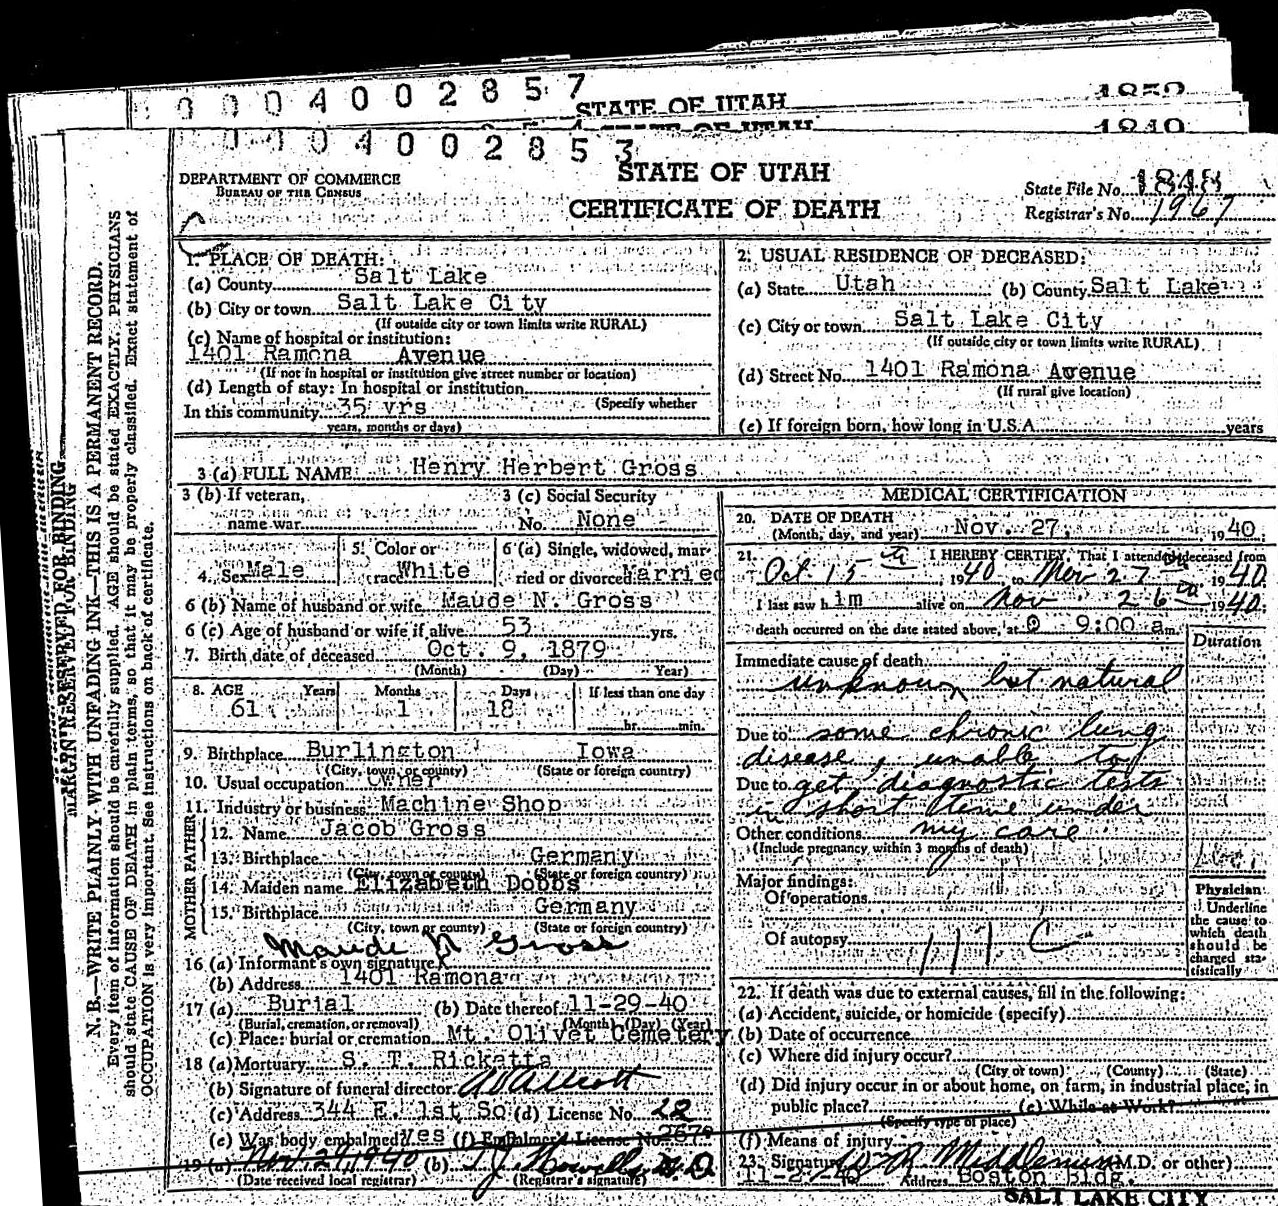 0004002857
STATE OF UTAH
1850
STATE OF UTAH
1849
0004002853
STATE OF UTAH
DEPARTMENT OF COMMERCE
BUREAU OF THE CENSUS
CERTIFICATE OF DEATH
State File No. 1848
Registrar's No. 1967
MARGIN RESERVED FOR BINDING
N. B.—WRITE PLAINLY WITH UNFADING INK—THIS IS A PERMANENT RECORD.
Every item of information should be carefully supplied. AGE should be stated EXACTLY. PHYSICIANS
should state CAUSE OF DEATH in plain terms, so that it may be properly classified. Exact statement of
OCCUPATION is very important. See instructions on back of certificate.
1. PLACE OF DEATH:
(a) County Salt Lake
(b) City or town Salt Lake City
(If outside city or town limits write RURAL)
(c) Name of hospital or institution:
1401 Ramona Avenue
(If not in hospital or institution give street number or location)
(d) Length of stay: In hospital or institution
(Specify whether
In this community 35 yrs
years, months or days)
2. USUAL RESIDENCE OF DECEASED:
(a) State Utah (b) County Salt Lake
(c) City or town Salt Lake City
(If outside city or town limits write RURAL)
(d) Street No. 1401 Ramona Avenue
(If rural give location)
(e) If foreign born, how long in U.S.A. years
3 (a) FULL NAME Henry Herbert Gross
3 (b) If veteran,
name war
3 (c) Social Security
No. None
4. Sex Male
5. Color or
race White
6 (a) Single, widowed, mar-
ried or divorced Married
6 (b) Name of husband or wife Maude N. Gross
6 (c) Age of husband or wife if alive 53 yrs.
7. Birth date of deceased Oct. 9, 1879
(Month) (Day) Year)
8. AGE Years Months Days If less than one day
61 1 18
hr. min.
9. Birthplace Burlington Iowa
(City, town, or county) (State or foreign country)
10. Usual occupation Owner
11. Industry or business Machine Shop
FATHER
12. Name Jacob Gross
13. Birthplace Germany
(City, town or county) (State or foreign country)
MOTHER
14. Maiden name Elizabeth Dobbs
15. Birthplace Germany
(City, town or county) (State or foreign country)
Maude N Gross
16 (a) Informant's own signature
(b) Address 1401 Ramona
17 (a) Burial (b) Date thereof 11-29-40
(Burial, cremation, or removal) (Month) (Day) (Year)
(c) Place: burial or cremation Mt. Olivet Cemetery
18 (a) Mortuary S. T. Ricketts
(b) Signature of funeral director
(c) Address 344 E. 1st So (d) License No. 22
(e) Was body embalmed? Yes (f) Embalmer's License No. 267
19 (a) Nov. 29, 1940 (b) T J Howells M.D.
(Date received local registrar) (Registrar's signature)
MEDICAL CERTIFICATION
20. DATE OF DEATH
(Month, day, and year) Nov. 27, 1940
21. I HEREBY CERTIFY, That I attended deceased from
Oct 15 1940 to Nov 27 1940
I last saw him alive on Nov 26 1940
death occurred on the date stated above, at 9:00 am.
Duration
Immediate cause of death
unknown but natural
Due to some chronic lung
disease, unable to
Due to get diagnostic tests
in short time under
Other conditions my care
(Include pregnancy within 3 months of death)
Major findings:
Of operations
Of autopsy 111 C
Physician
Underline
the cause to
which death
should be
charged sta-
tistically
22. If death was due to external causes, fill in the following:
(a) Accident, suicide, or homicide (specify)
(b) Date of occurrence
(c) Where did injury occur?
(City or town) (County) (State)
(d) Did injury occur in or about home, on farm, in industrial place, in
public place? (e) While at Work?
(Specify type of place)
(f) Means of injury
23. Signature R Middlemiss (M.D. or other)
11-27-40 Address Boston Bldg.
SALT LAKE CITY